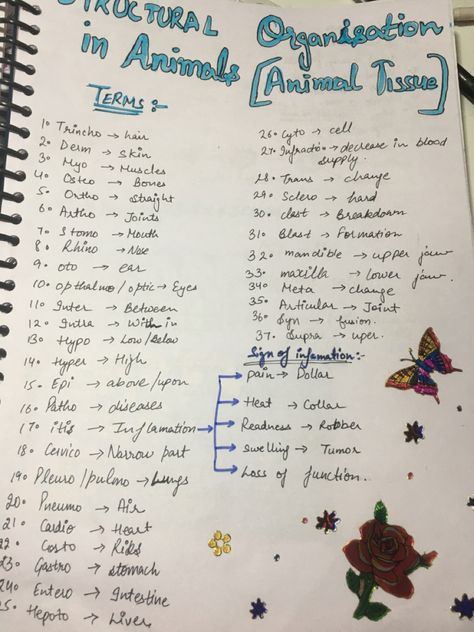 STRUCTURAL Organisation
in Animals [Animal Tissue]
TERMS :-
1• Tricho → hair
2• Derm → skin
3• Myo → Muscles
4• Osteo → Bones
5• Ortho → straight
6• Artho → Joints
7• Stomo → Mouth
8• Rhino → Nose
9• oto → ear
10• opthalmo / optic → Eyes
11• Inter → Between
12• Intra → With in
13• Hypo → Low/Below
14• Hyper → High
15• Epi → above/upon
16• Patho → diseases
17• itis → Inflamation
18• Cervico → Narrow part
19• Pleuro/pulmo → Lungs
20• Pneumo → Air
21• Cardio → Heart
22• Costo → Ribs
23• Gastro → stomach
24• Entero → Intestine
25• Hepoto → Liver
26• Cyto → cell
27• Infraction → decrease in blood
supply.
28• Trans → change
29• Sclero → hard
30• clast → Breakdown
31• Blast → Formation
32• mandible → upper jaw
33• maxilla → lower jaw.
34• Meta → change
35• Articular → Joint
36• Syn → fusion.
37• Supra → uper.
Sign of infamation :-
Pain → Dollar
Heat → Collar
Readness → Robber
Swelling → Tumor
Loss of function.